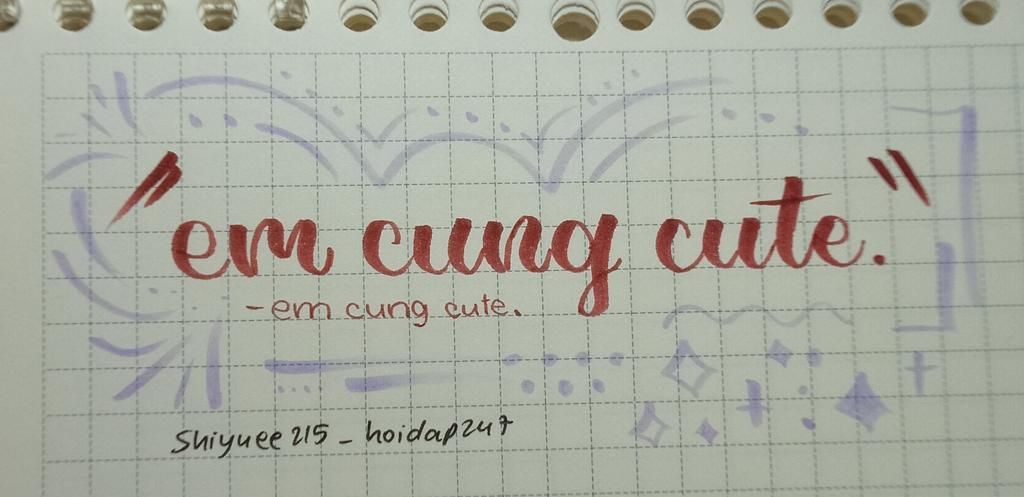 "em cung cute."
-em cung cute.
Shiyuee 215 _ hoidap247